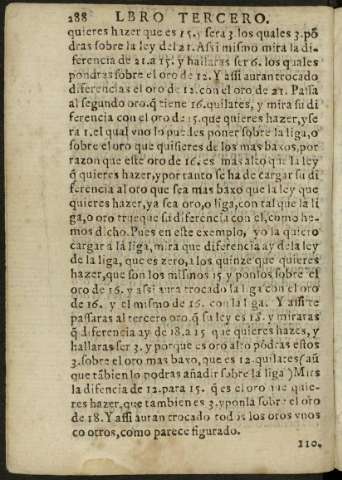 288 LBRO TERCERO.
quieres hazer que es 15. y sera 3. los quales 3. põ
dras sobre la ley del 21. Assi mismo mira la di-
ferencia de 21. a 15. y hallaras ser 6. los quales
pondras sobre el oro de 12. Y assi auran trocado
diferencias el oro de 12. con el oro de 21. Passa
al segundo oro. q̃ tiene 16. quilates, y mira su di
ferencia con el oro de 15. que quieres hazer, y se
ra 1. el qual vno lo puedes poner sobre la liga, o
sobre el oro que quisieres de los mas baxos, por
razon que este oro de 16. es mas alto que la ley
q̃ quieres hazer, y por tanto se ha de cargar su di
ferencia al oro que sea mas baxo que la ley que
quieres hazer, ya sea oro, o liga, con tal que la li
ga, o oro trueque su diferencia con el, como he-
mos dicho. Pues en este exemplo, yo la quiero
cargar a la liga, mira que diferencia ay de la ley
de la liga, que es zero, a los quinze que quieres
hazer, que son los mismos 15 y ponlos sobre el
oro de 16. y assi aura trocado la liga con el oro
de 16. y el mismo de 16. con la liga. Y assi te
passaras al tercero oro. q̃ su ley es 18. y miraras
q̃ diferencia ay de 18. a 15 que quieres hazer, y
hallaras ser 3. y porque es oro alto põdras estos
3. sobre el oro mas baxo, que es 12. quilates (aũ
que tãbien lo podras añadir sobre la liga) Mira
la difencia de 12. para 15. q̃ es el oro que quie-
res hazer, que tambien es 3. y ponla sobre el oro
de 18. Y assi auran trocado todos los oros vnos
cõ otros, como parece figurado.
110.